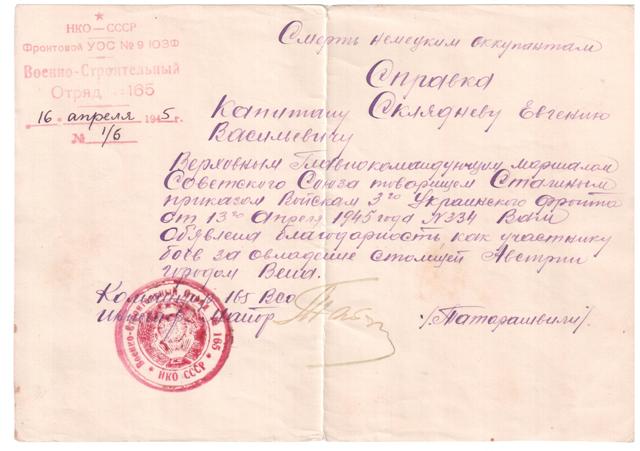 НКО—СССР
Фронтовой УОС №9 ЮЗФ
Военно-Строительный
Отряд №165
"16" апреля 1945 г.
№ 1/6
Смерть немецким оккупантам
Справка
Капитану Склядневу Евгению
Васильевичу
Верховным Главнокомандующим маршалом
Советского Союза товарищем Сталиным
приказом Войскам 3го Украинского фронта
от 13го Апреля 1945 года N334 Вам
Объявлена благодарность как участнику
боев за овладение столицей Австрии
городом Вена.
Командир 165 ВСО
Инженер Майор /Патарашвили/.
Военно-Строительный отряд № 165
* НКО СССР *